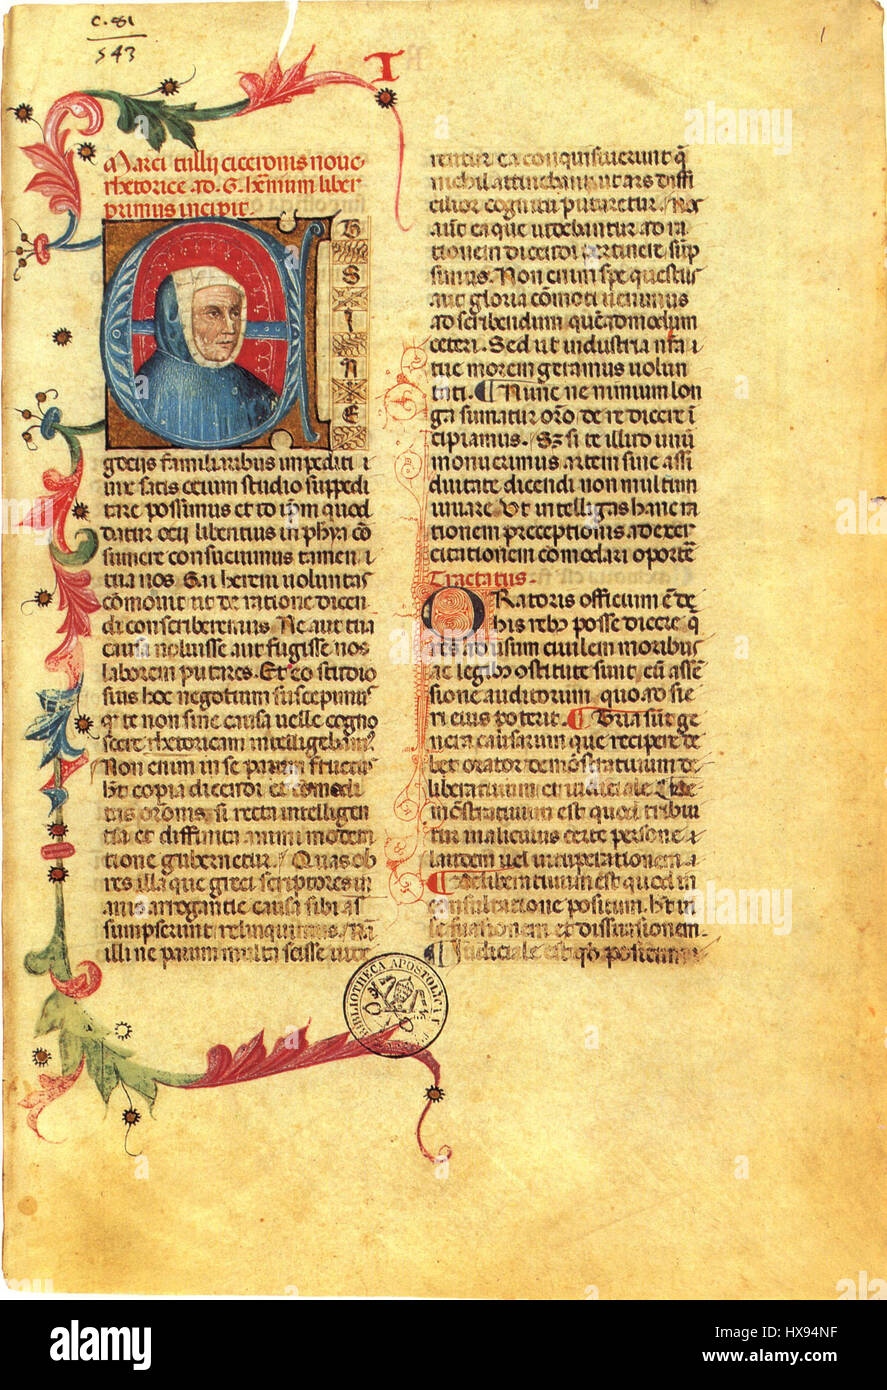 C. 81
543
1
T
Marci tullij ciceronis noue
rhetorice ad. G. hēnium liber
primus incipit
E
T
S
I
N
E
gociis familiaribus impediti i
uix satis ocium studio suppedi
tare possumus et id ipm quod
datur ocij libentius in phya cō
sumere consueuimus tamen
tua nos. Gai herem uoluntas
cōmouit ut de ratione dicen
di conscriberemus. Ne aut tua
causa noluisse aut fugisse nos
laborem putares. Et eo studio
suis hoc negotium suscepimus
te non sine causa uelle cogno
scere rhetoricam intelligebam
Non enim in se parum fructus
hēt copia dicendi et comodi
tas oronis, si recta intelligen
tia et diffinita animi modera
tione gubernetur. Quas ob
res illa que greci scriptores in
anis arrogantie causa sibi as
sumpserunt relinquimus. Nā
illi ne parum multa scisse uide
rentur ea conquisiuerunt q̄
nichil attinebant ut ars diffi
cilior cognitu putaretur. Nos
aut ea que uidebantur ad ra
tionem dicendi pertinere sūp
simus. Non enim spe questus
aut gloria cōmoti uenimus
ad scribendum quēadmodum
ceteri. Sed ut industria nr̄a
tue morem geramus uolun
tati. Nunc ne nimium lon
ga sumatur oro de re dicere ī
cipiamus. Sz si te illud unū
monuerimus artem sine assi
duitate dicendi non multum
iuuare. Ut intelligas hanc ra
tionem preceptionis ad exer
citationem comodari oportē
Tractatus.
ORatoris officium ē de
his rebus posse dicere q̄
res ad usum ciuilem moribus
ac legibus ostitute sunt, cū assē
sione auditorum quo ad fie
ri eius poterit. Tria sūt ge
nera causarum que recipere de
bet orator demōstratiuum de
liberatiuum et iudiciale. De
mōstratiuum est quod tribui
tur in alicuius certe persone
laudem uel uituperationem
Deliberatiuum est quod in
consultatione positum. hēt in
se suasionem et dissuasionem.
Judiciale est qd positum
BIBLIOTHECA APOSTOLICA
alamy
Image ID: HX94NF
www.alamy.com